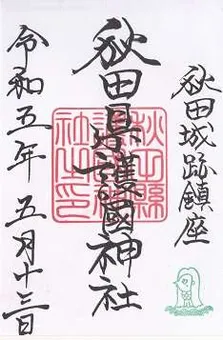 秋田城跡鎮座
秋田県護國神社
秋田縣護國神社之印
令和五年 五月十三日